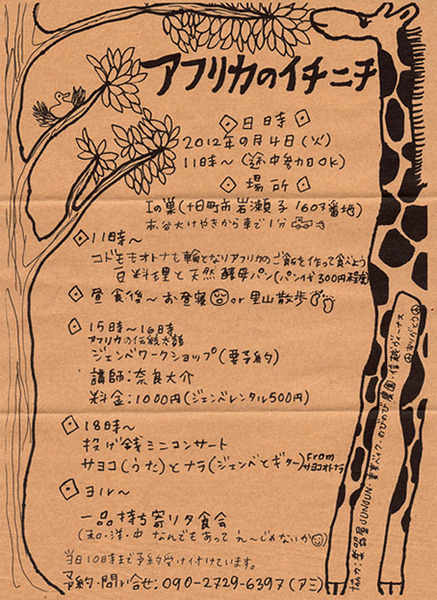 アフリカのイチニチ
日時
2012年9月4日(火)
11時〜(途中参加OK)
場所
Iの巣(十日町市岩瀬子160番地)
から車で1分
11時〜
コドモもオトナも輪となりアフリカのご飯を作って食べよう
豆料理と天然酵母パン(パン代300円程度)
昼食後〜お昼寝 or 里山散歩
15時〜16時
アフリカの伝統太鼓
ジェンベワークショップ(要予約)
講師:奈良大介
料金:1000円(ジェンベレンタル500円)
18時〜
投げ銭ミニコンサート
サヨコ(うた)とナラ(ジェンベとギター)from サヨコオトナラ
ヨル〜
一品持ち寄り夕食会
(和・洋・中 なんでもあって え〜じゃないか)
当日10時まで予約受け付けています。
予約・問い合せ:090-2729-6397(アミ)
ありがとう